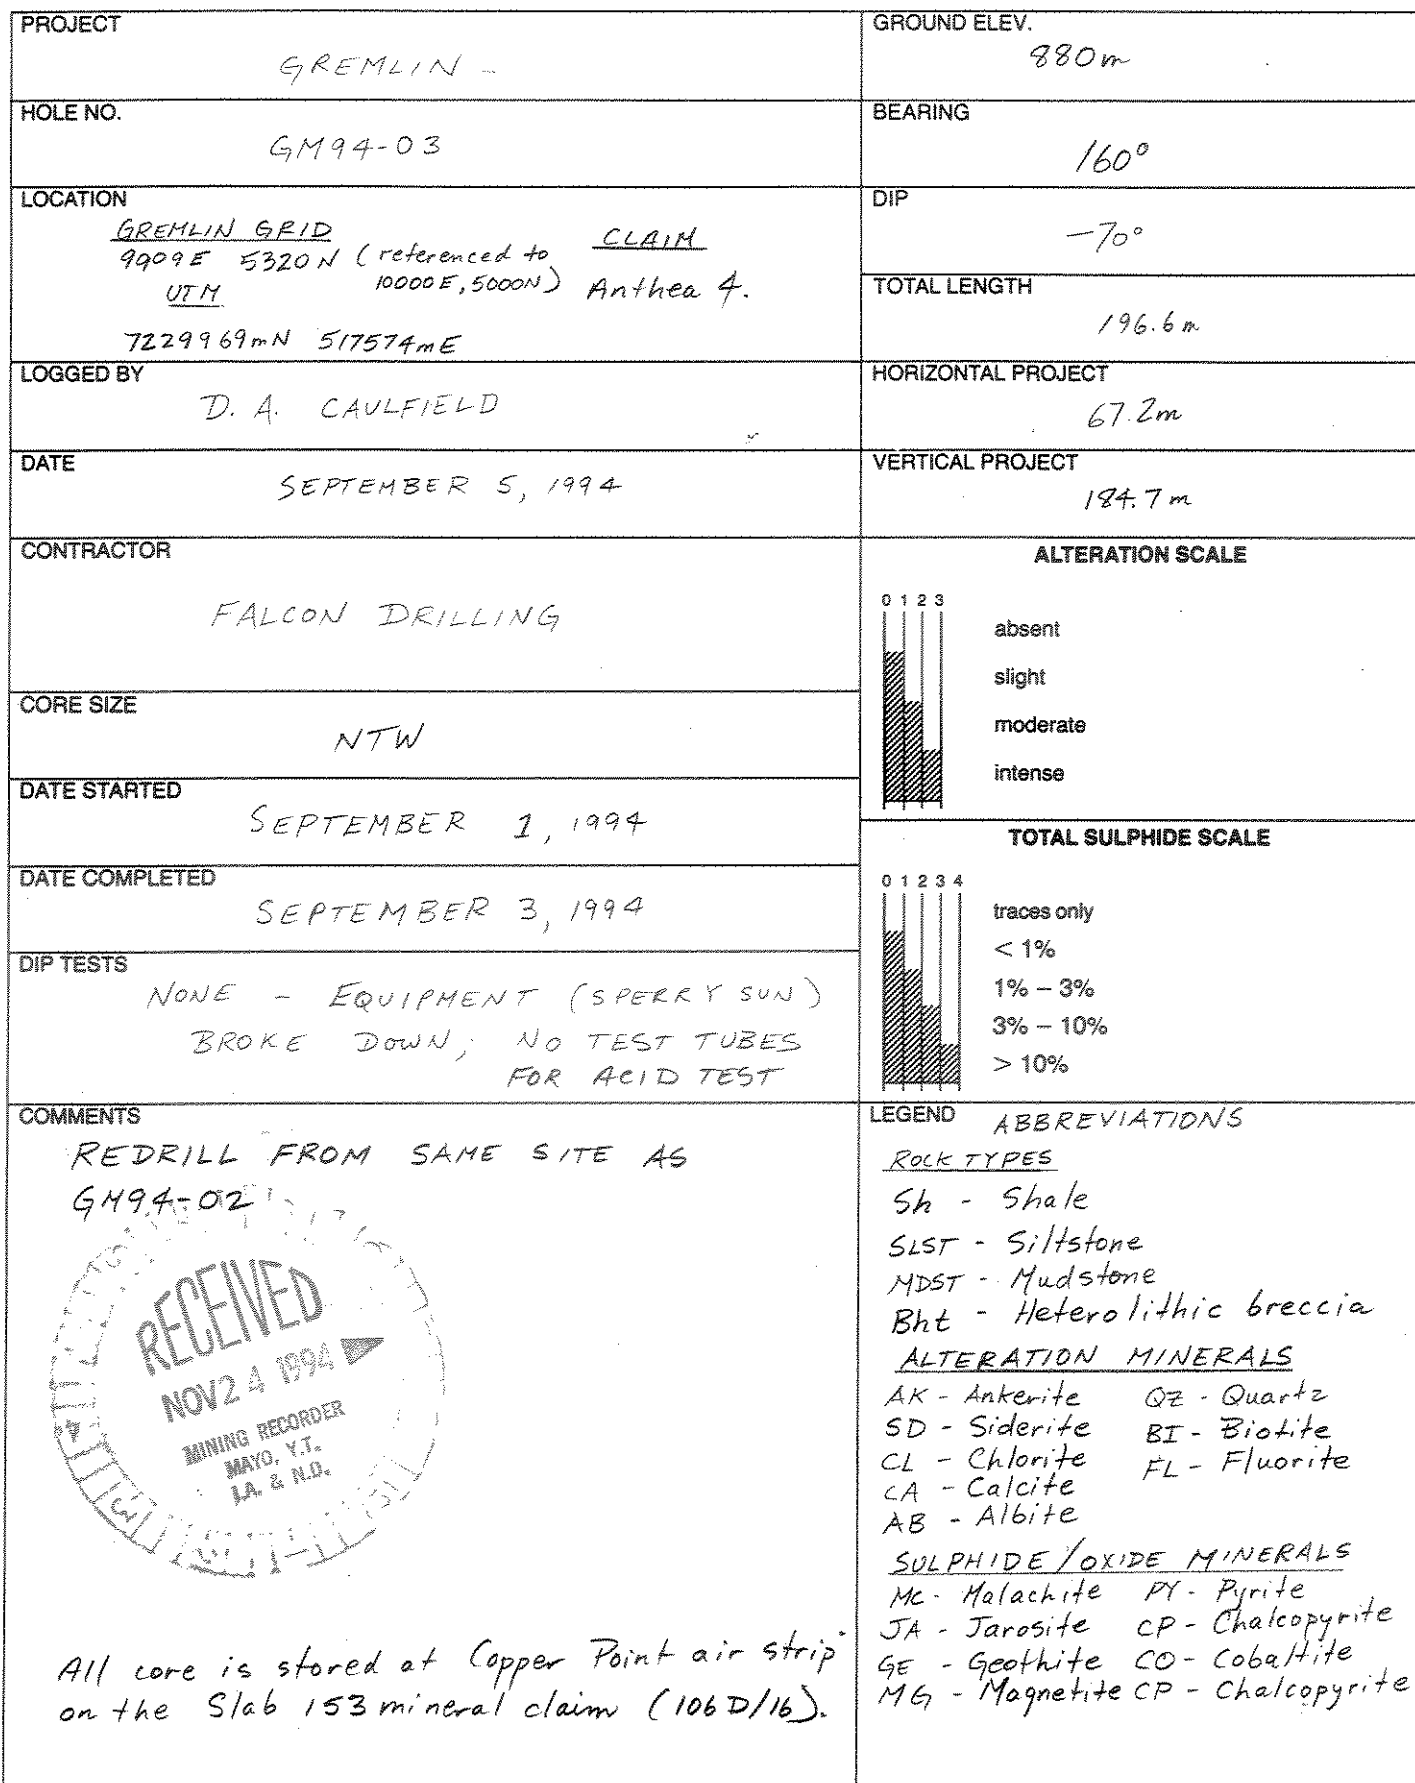 PROJECT
GREMLIN -
HOLE NO.
GM94-03
LOCATION
GREMLIN GRID
9909E 5320N (referenced to
10000E, 5000N)
UTM
7229969mN 517574mE
CLAIM
Anthea 4.
LOGGED BY
D. A. CAULFIELD
DATE
SEPTEMBER 5, 1994
CONTRACTOR
FALCON DRILLING
CORE SIZE
NTW
DATE STARTED
SEPTEMBER 1, 1994
DATE COMPLETED
SEPTEMBER 3, 1994
DIP TESTS
NONE - EQUIPMENT (SPERRY SUN)
BROKE DOWN; NO TEST TUBES
FOR ACID TEST
COMMENTS
REDRILL FROM SAME SITE AS
GM94-02
RECEIVED
NOV 24 1994
MINING RECORDER
MAYO, Y.T.
I.A. & N.D.
All core is stored at Copper Point air strip
on the Slab 153 mineral claim (106 D/16).
GROUND ELEV.
880m
BEARING
160°
DIP
-70°
TOTAL LENGTH
196.6m
HORIZONTAL PROJECT
67.2m
VERTICAL PROJECT
184.7m
ALTERATION SCALE
0 1 2 3
absent
slight
moderate
intense
TOTAL SULPHIDE SCALE
0 1 2 3 4
traces only
< 1%
1% – 3%
3% – 10%
> 10%
LEGEND ABBREVIATIONS
ROCK TYPES
Sh - Shale
SLST - Siltstone
MDST - Mudstone
Bht - Heterolithic breccia
ALTERATION MINERALS
AK - Ankerite QZ - Quartz
SD - Siderite BI - Biotite
CL - Chlorite FL - Fluorite
CA - Calcite
AB - Albite
SULPHIDE/OXIDE MINERALS
MC - Malachite PY - Pyrite
JA - Jarosite CP - Chalcopyrite
GE - Geothite CO - Cobaltite
MG - Magnetite CP - Chalcopyrite